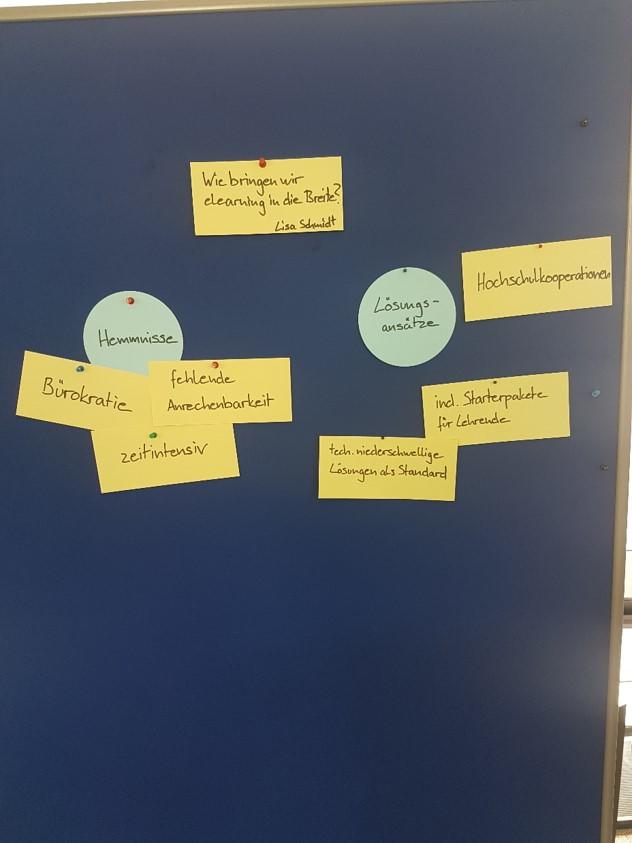 Wie bringen wir
elearning in die Breite?
Lisa Schmidt
Hemmnisse
Bürokratie
fehlende
Anrechenbarkeit
zeitintensiv
Lösungs-
ansätze
Hochschulkooperationen
incl. Starterpakete
für Lehrende
tech. niederschwellige
Lösungen als Standard